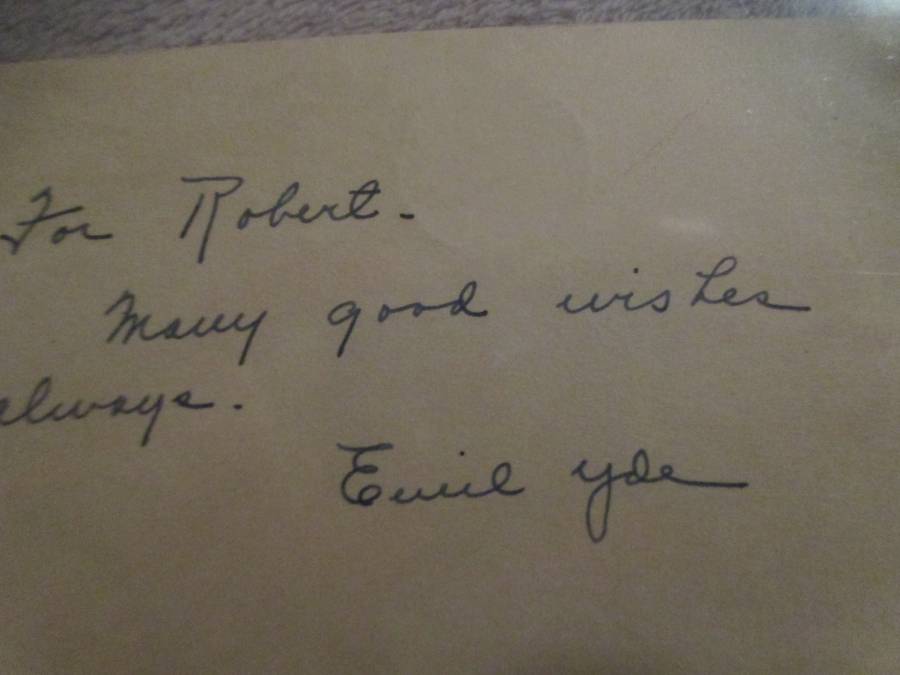 For Robert -
Many good wishes
always.
Emil Yde